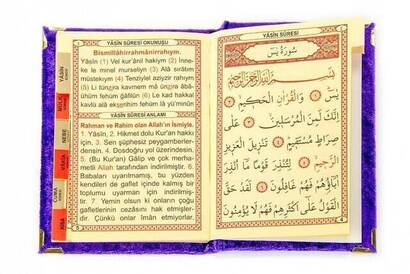 YÂSÎN SÛRESİ OKUNUŞU
Bismillâhirrahmânirrahıym.
Yâsîn (1) Vel kur'ânil hakiym (2) İnne-
ke le minel murseliyn (3) Alâ sırâtım
müstekıym (4) Tenziylel aziyzir rahıym
(5) Li tünzira kavmem mâ ünzira âbâ-
ühüm fehüm ğâfilûn (6) Le kad hakkal
kavlü alâ ekserihim fehüm lâ yü'minûn
YÂSÎN SÛRESİ ANLAMI
Rahman ve Rahim olan Allah'ın ismiyle.
1. Yâsîn, 2. Hikmet dolu Kur'an hakkı
için, 3. Sen şüphesiz peygamberler-
densin. 4. Dosdoğru yol üzerindesin.
5. (Bu Kur'an) Gâlip ve çok merha-
metli Allah tarafından indirilmiştir. 6.
Babaları uyarılmamış, bu yüzden
kendileri de gaflet içinde kalmış bir
toplumu uyarman için indirilmiş-
tir. 7. Yemin olsun ki onların çoğu
gafletlerinin cezasını hak etmişler-
dir. Çünkü onlar îman etmiyorlar.
YÂSÎN
MÜLK
NEBE
VÂKIA
CUMA
سُورَةُ يٰسٓ
بِسْمِ اللّٰهِ الرَّحْمٰنِ الرَّحِيمِ
يٰسٓ ﴿١﴾ وَالْقُرْاٰنِ الْحَكِيمِ ﴿٢﴾
اِنَّكَ لَمِنَ الْمُرْسَلِينَ ﴿٣﴾ عَلٰى
صِرَاطٍ مُسْتَقِيمٍ ﴿٤﴾ تَنْزِيلَ الْعَزِيزِ
الرَّحِيمِ ﴿٥﴾ لِتُنْذِرَ قَوْمًا مَٓا اُنْذِرَ
اٰبَٓاؤُهُمْ فَهُمْ غَافِلُونَ ﴿٦﴾ لَقَدْ حَقَّ
الْقَوْلُ عَلٰٓى اَكْثَرِهِمْ فَهُمْ لَا يُؤْمِنُونَ